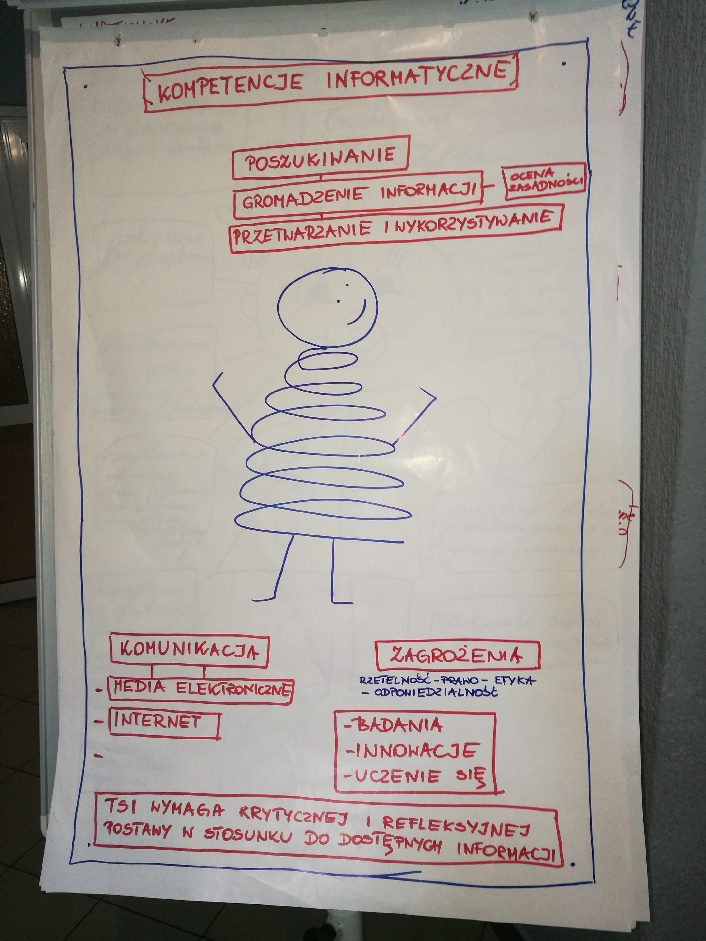 KOMPETENCJE INFORMATYCZNE
POSZUKIWANIE
GROMADZENIE INFORMACJI
OCENA
ZASADNOŚCI
PRZETWARZANIE I WYKORZYSTYWANIE
KOMUNIKACJA
- MEDIA ELEKTRONICZNE
- INTERNET
-
ZAGROŻENIA
RZETELNOŚĆ - PRAWO - ETYKA
- ODPOWIEDZIALNOŚĆ
- BADANIA
- INNOWACJE
- UCZENIE SIĘ
TSI WYMAGA KRYTYCZNEJ I REFLEKSYJNEJ
POSTAWY W STOSUNKU DO DOSTĘPNYCH INFORMACJI